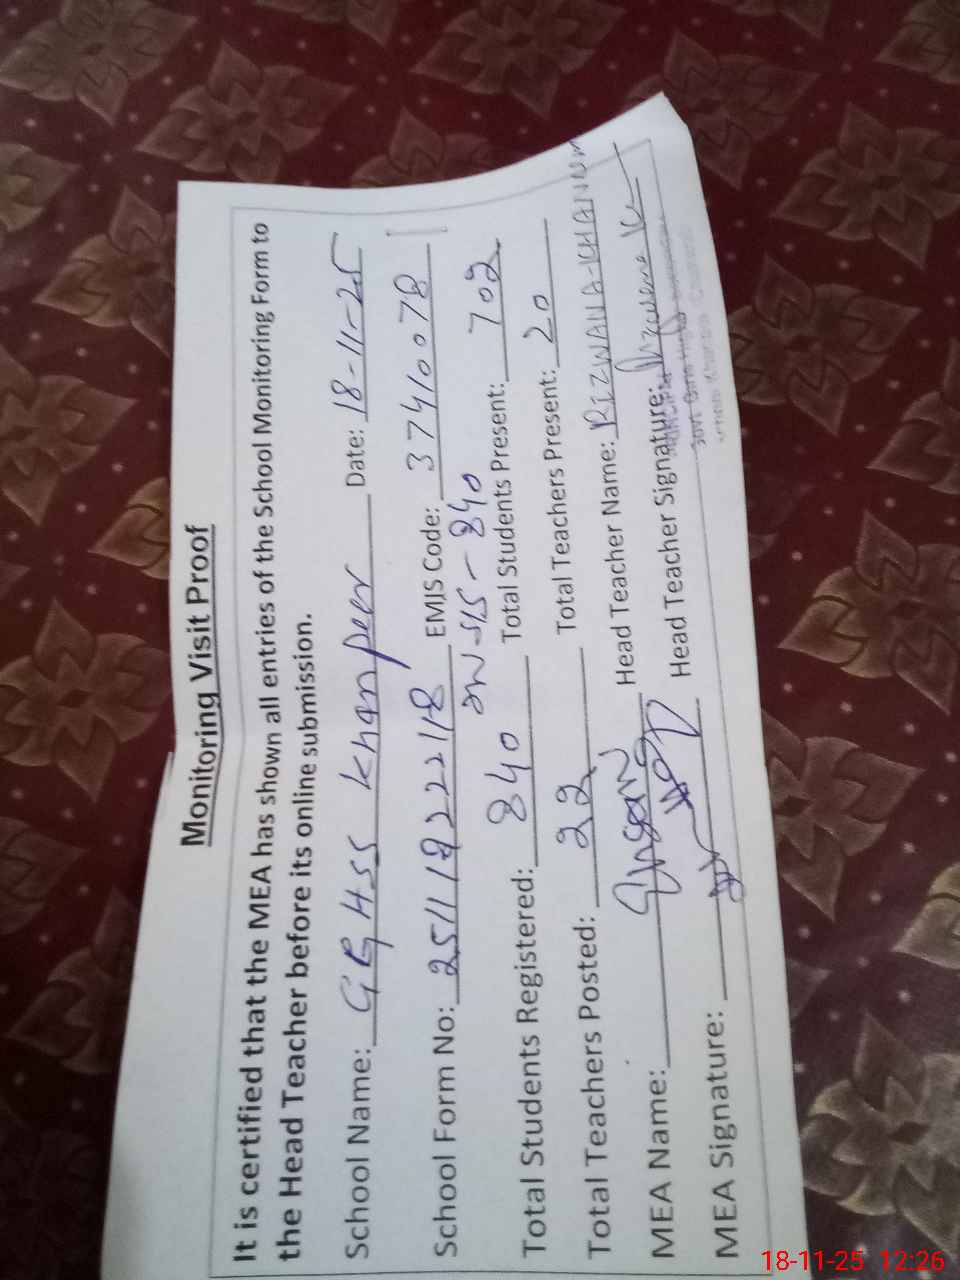 Monitoring Visit Proof
It is certified that the MEA has shown all entries of the School Monitoring Form to
the Head Teacher before its online submission.
School Name: GGHSS Khanpur Date: 18-11-25
School Form No: 251118222118 EMIS Code: 37410078
on-SIS-840
Total Students Registered: 840 Total Students Present: 702
Total Teachers Posted: 22 Total Teachers Present: 20
MEA Name: Head Teacher Name: RIZWANA-KHANUM
MEA Signature: Head Teacher Signature:
18-11-25 12:26